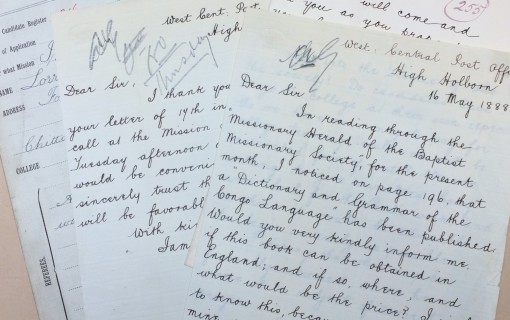 Candidate Register
of Application
what Mission
NAME
ADDRESS
COLLEGE
REFEREES.
West Cent. Post.
High
Thursday
Dear Sir,
I thank you
your letter of 19th in
call at the Mission
Tuesday afternoon
would be conveni
sincerely trust th
will be favorabl
With ki
I am
will come and
you as you
255
West: Central Post Offi
High Holborn
16 May 1888
Dear Sir
In reading through the
Missionary Herald of the Baptist
Missionary Society", for the present
month, I noticed on page 196, that
a "Dictionary and Grammar of the
Congo Language has been published.
Would you very kindly inform me
if this book can be obtained in
England; and if so, where, and
what would be the price? I
to know this, becau
mine